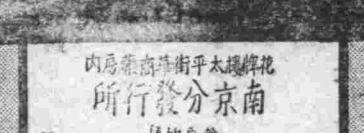 花牌樓太平街華商藥房内
南京分發行所